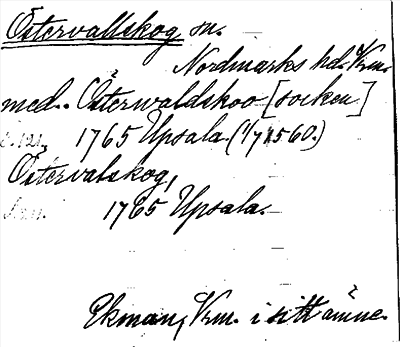 Östervallskog sn.
Nordmarks hd. Vrm.
med. Österwaldskoo [socken]
1765 Upsala (1/7 1560.)
Östervalskog,
1765 Upsala.
Ekman, Vrm. i sitt ämne.